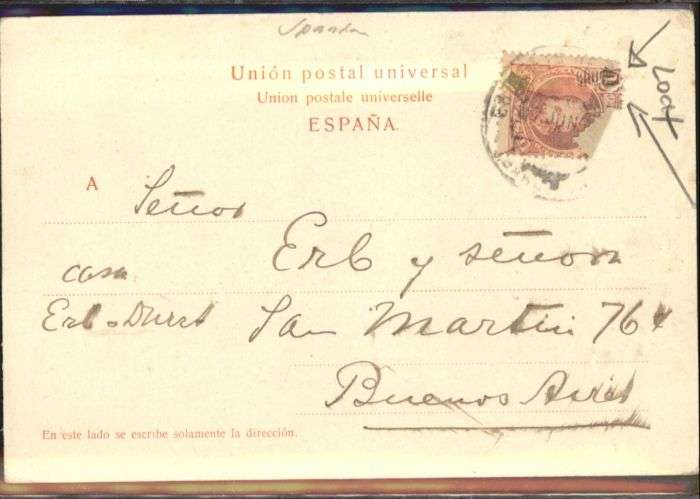 Unión postal universal
Union postale universelle
ESPAÑA.
LOOK
A
Señor
Erb y señora
casa
Erb-Durst San Martin 764
Buenos Aires
En este lado se escribe solamente la dirección.